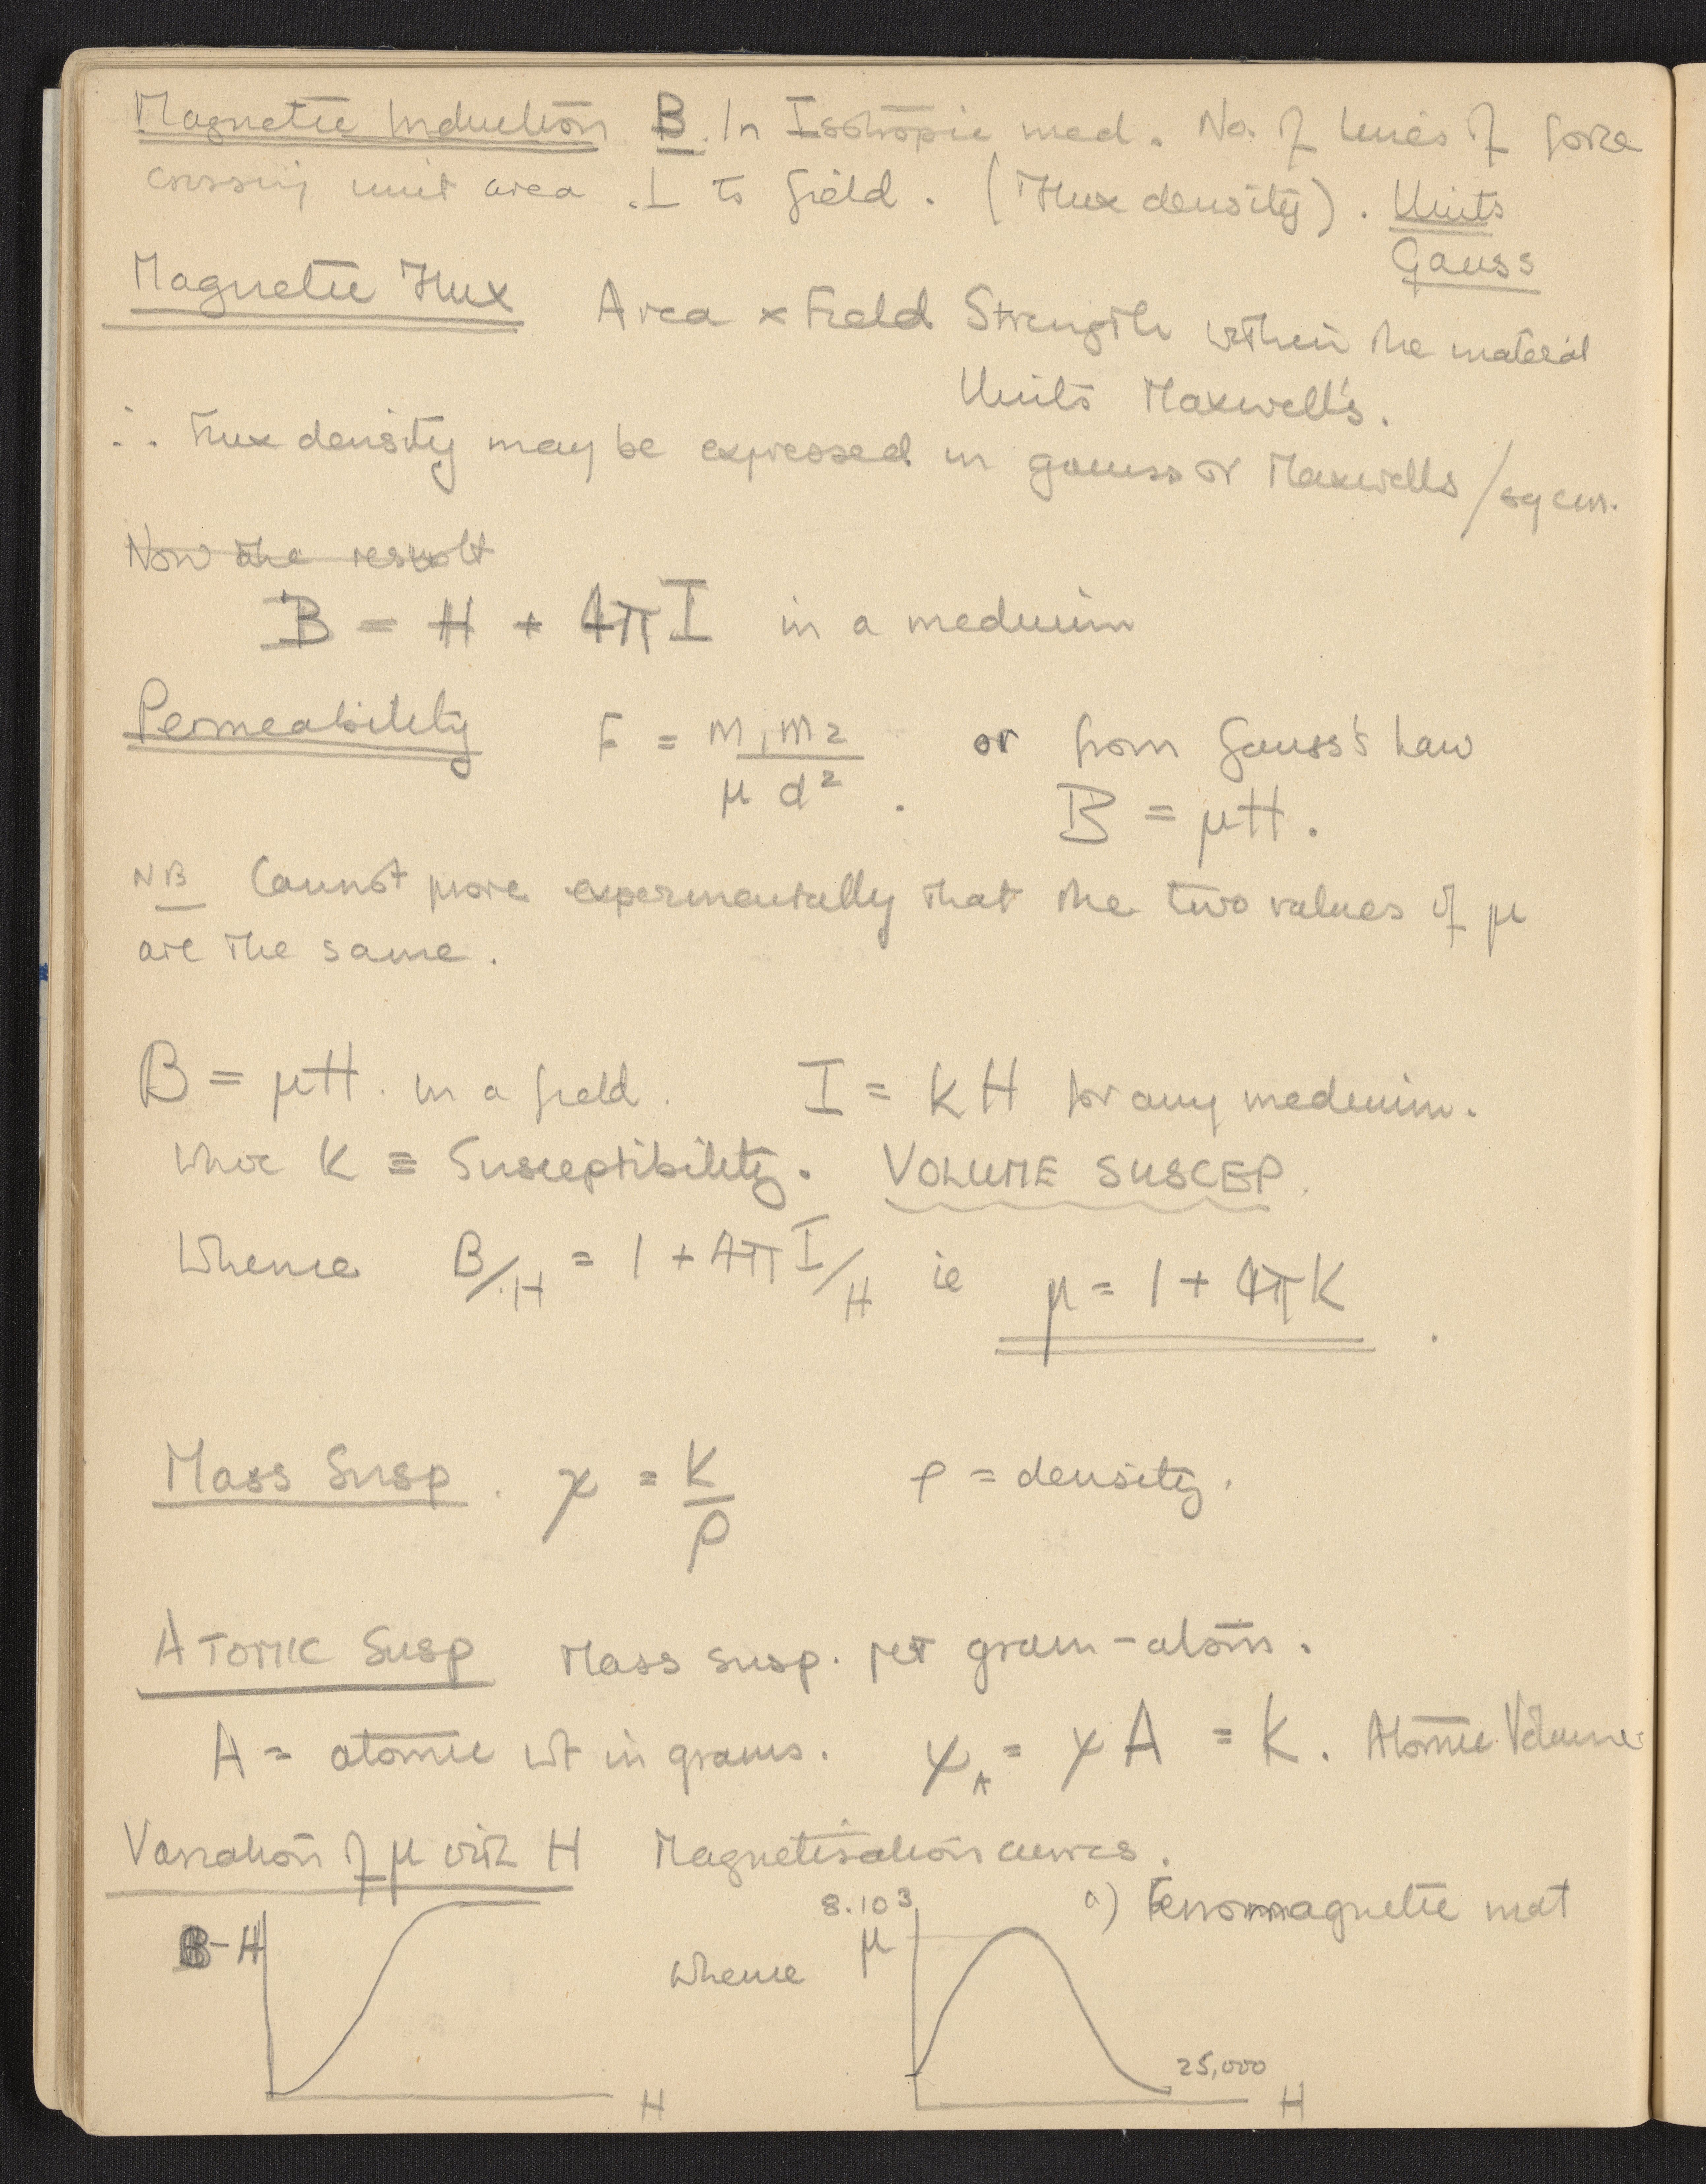 Magnetic Induction B. In Isotropic med. No. of lines of force
crossing unit area ⊥ to field. (Flux density). Units
Gauss
Magnetic Flux Area × Field Strength within the material
Units Maxwell's.
∴ Flux density may be expressed in gauss or Maxwells/sq cm.
Now the result
B = H + 4πI in a medium
Permeability F = m₁m₂ / μd². or from Gauss's Law
B = μH.
NB Cannot prove experimentally that the two values of μ
are the same.
B = μH. in a field. I = KH for any medium.
where K ≡ Susceptibility. VOLUME SUSCEP.
Whence B/H = 1 + 4πI/H ie μ = 1 + 4πK
Mass Susp. χ = K/ρ ρ = density.
ATOMIC Susp Mass susp. per gram-atom.
A = atomic wt in grams. χ_A = χA = K. Atomic Volume
Variation of μ with H Magnetisation curves.
8.10³ a) Ferromagnetic mat
B-H Whence μ
25,000
H H